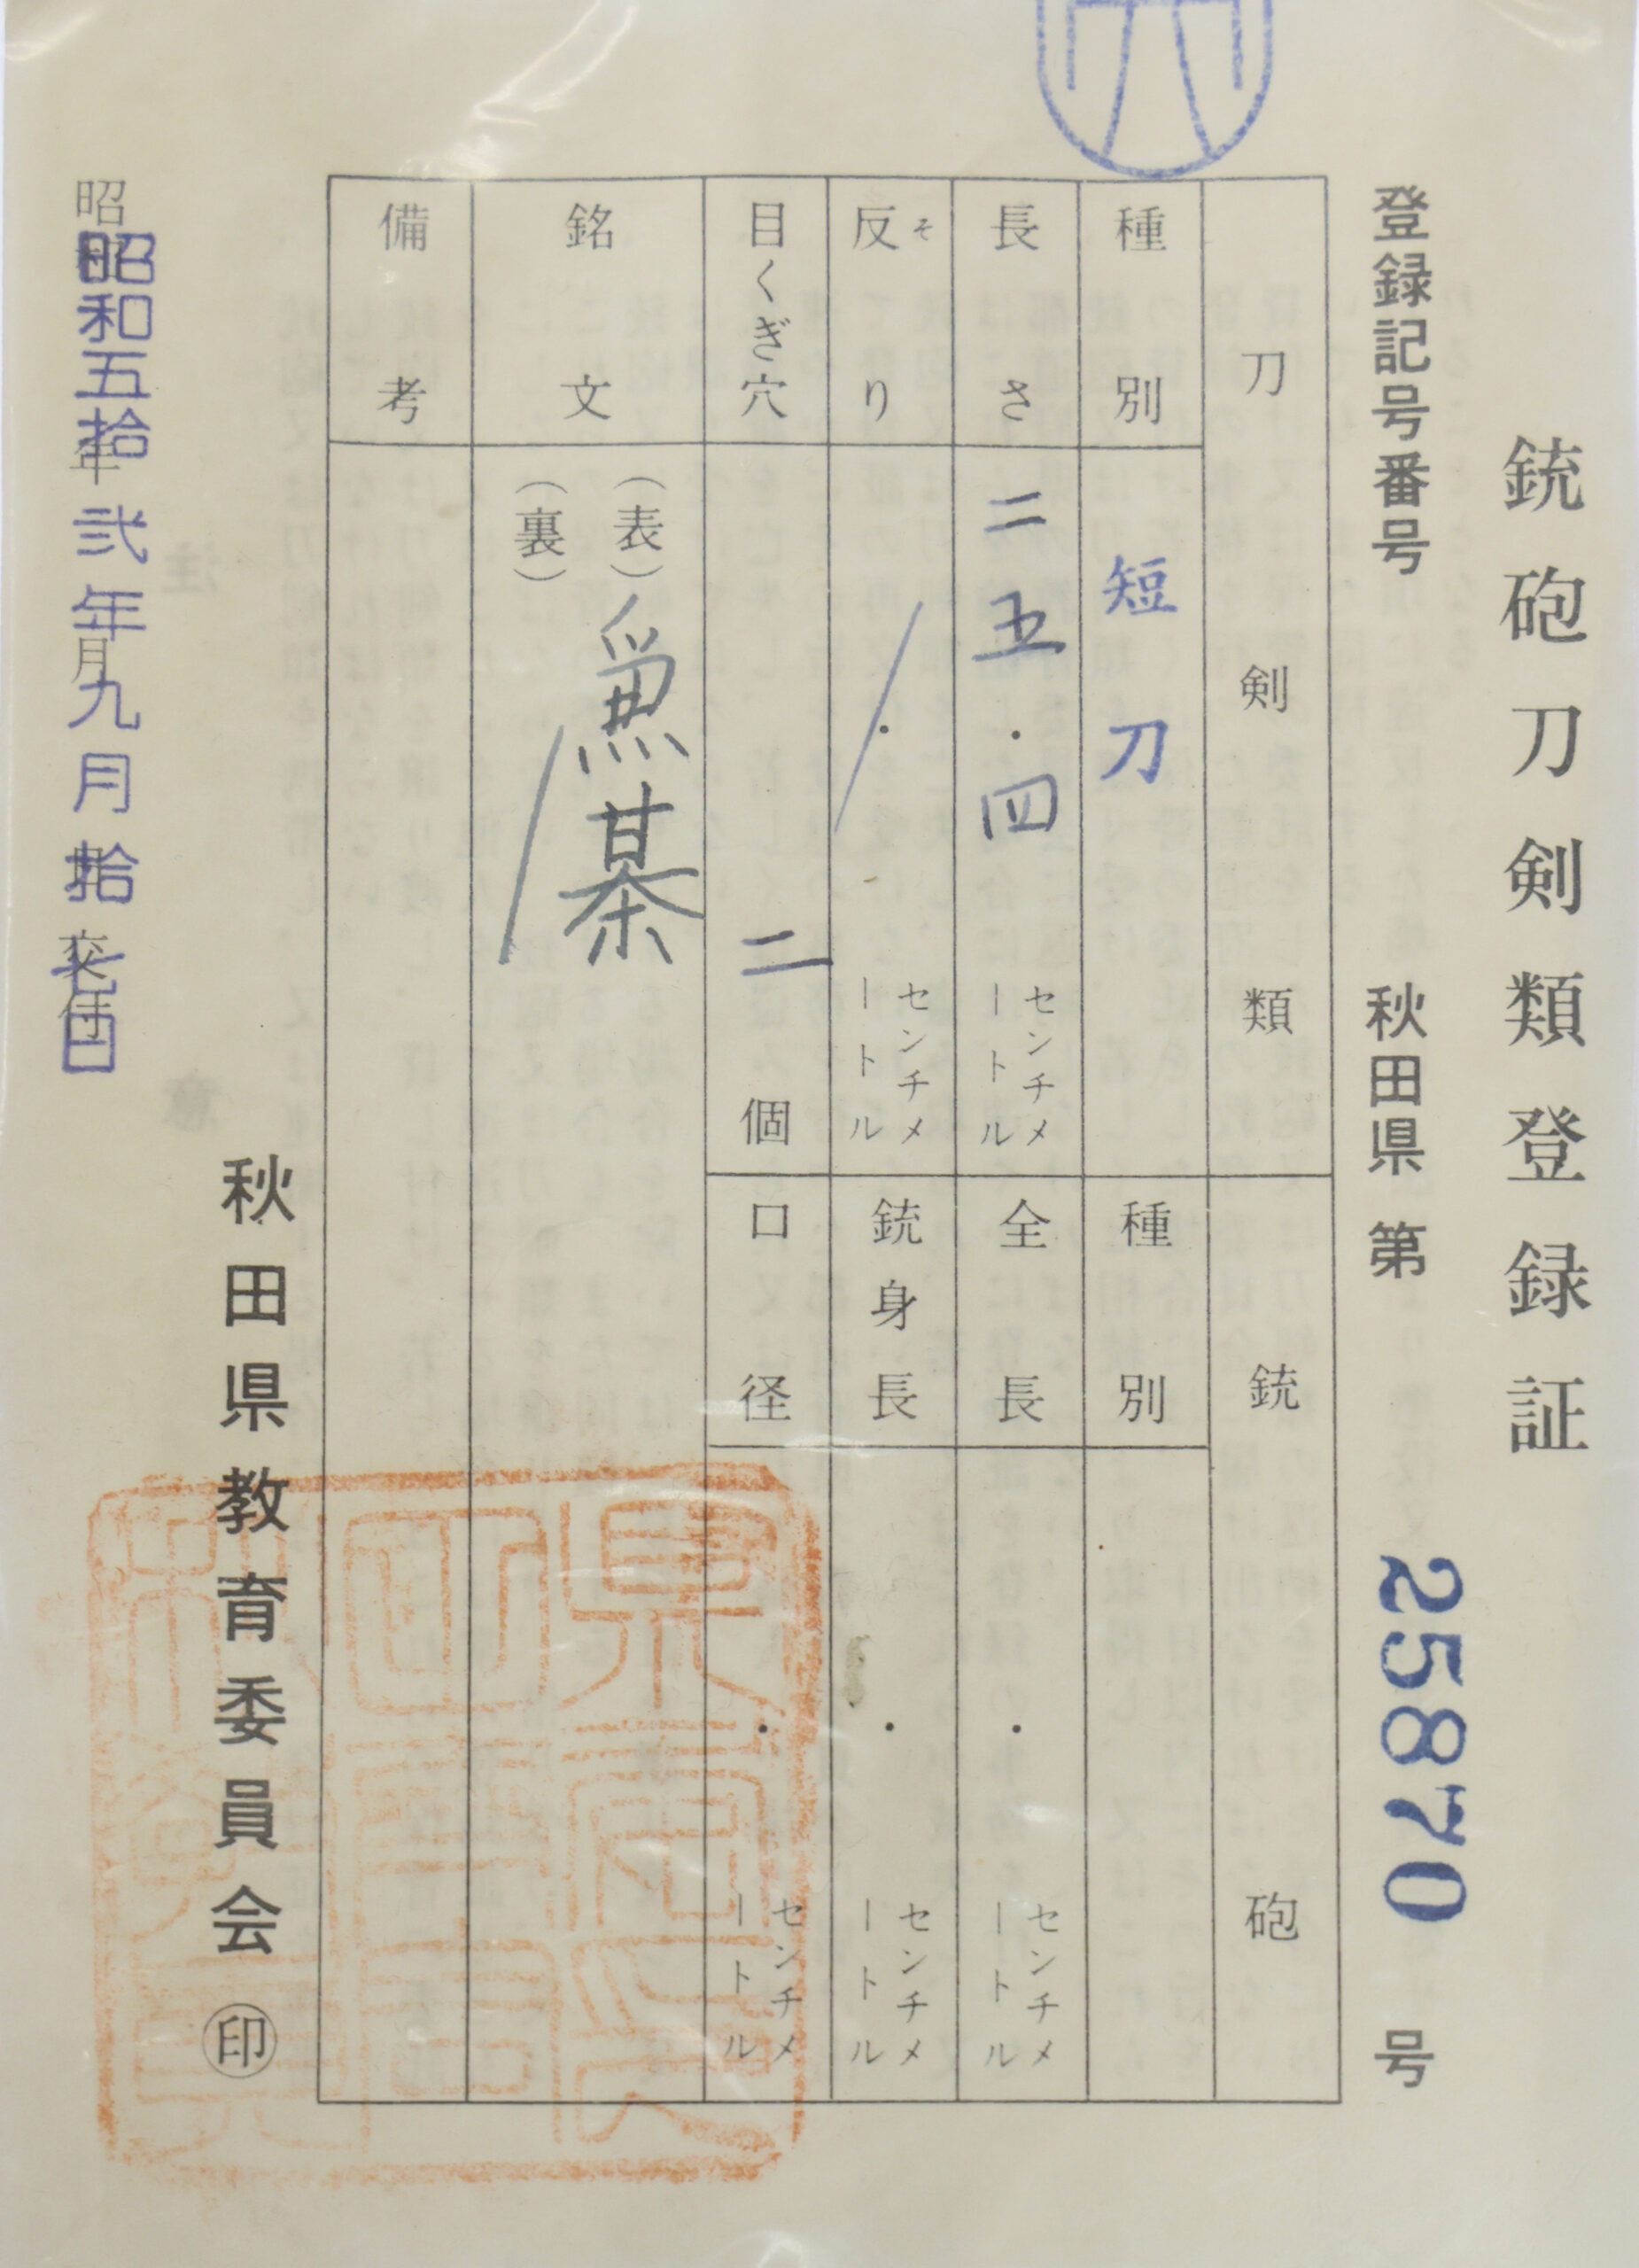 銃砲刀剣類登録証
登録記号番号 秋田県 第 25870 号
刀剣類
種別 短刀
長さ 二五・四 センチメートル
反り そ ・ センチメートル
目くぎ穴 二 個
銘文 (表)
(裏)
備考
銃砲
種別
全長 ・ センチメートル
銃身長 ・ センチメートル
口径 ・ センチメートル
昭和五拾弐年九月拾七日
交付
秋田県教育委員会 ㊞